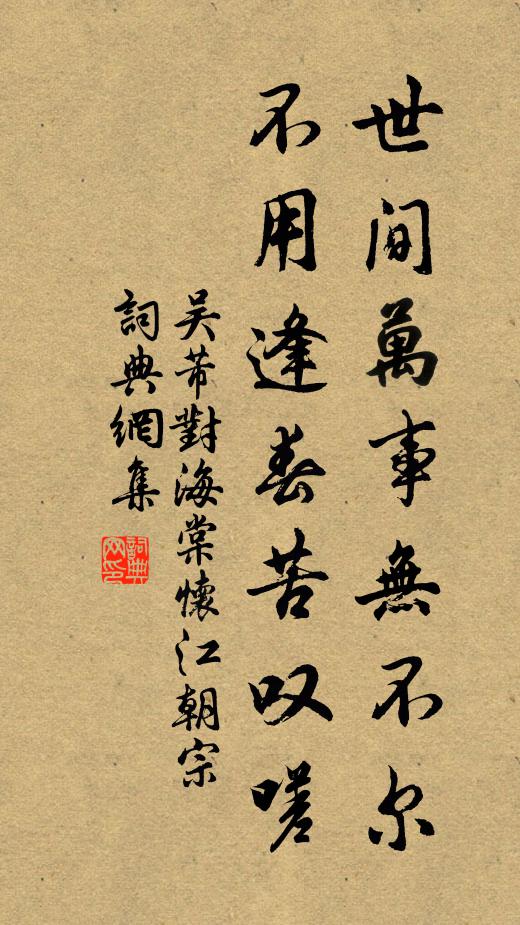 世间萬事無不尔
不用逢春苦叹嗟
吴芾對海棠懷江朝宗
詞典網集
詞典网印